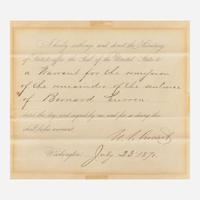 I hereby authorize and direct the Secretary
of State to affix the Seal of the United States to
a Warrant for the remission
of the remainder of the sentence
of Bernard
dated this day, and signed by me, and for so doing this
shall be his warrant.
U. S. Grant
Washington, July 23^d 1870.